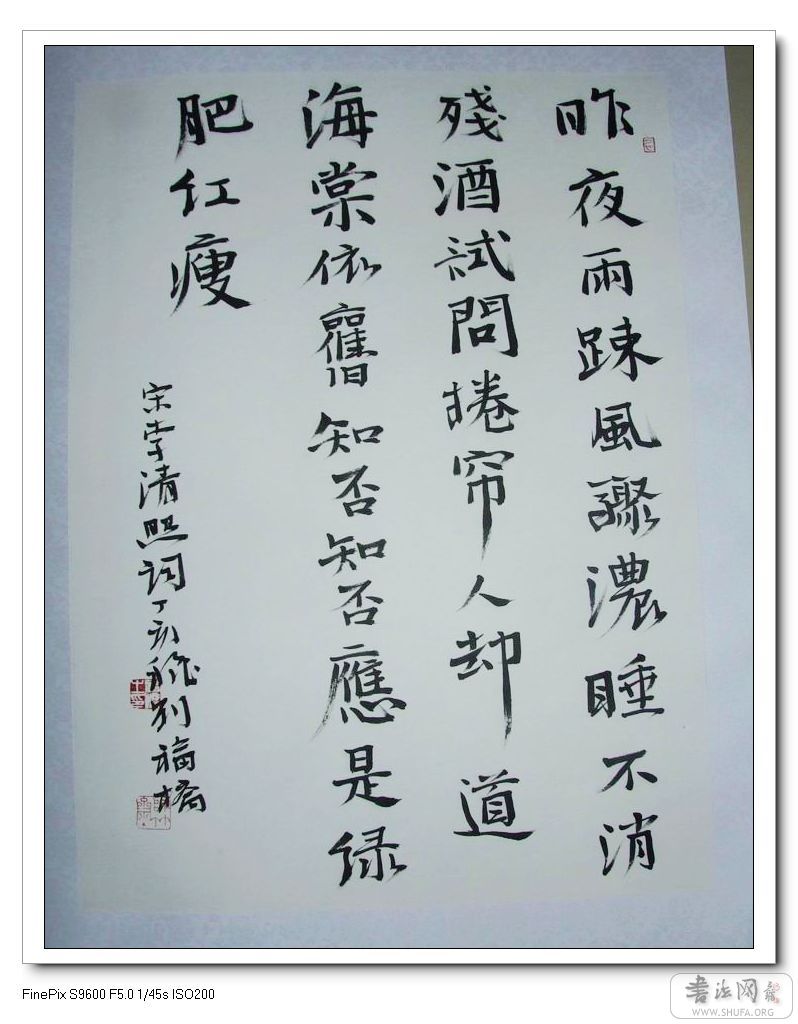 昨夜雨踈風驟濃睡不消
殘酒試問捲帘人却道
海棠依舊知否知否應是绿
肥红瘦
宋李清照词丁亥刘福橋
FinePix S9600 F5.0 1/45s ISO200
书法网
WWW.SHUFA.ORG